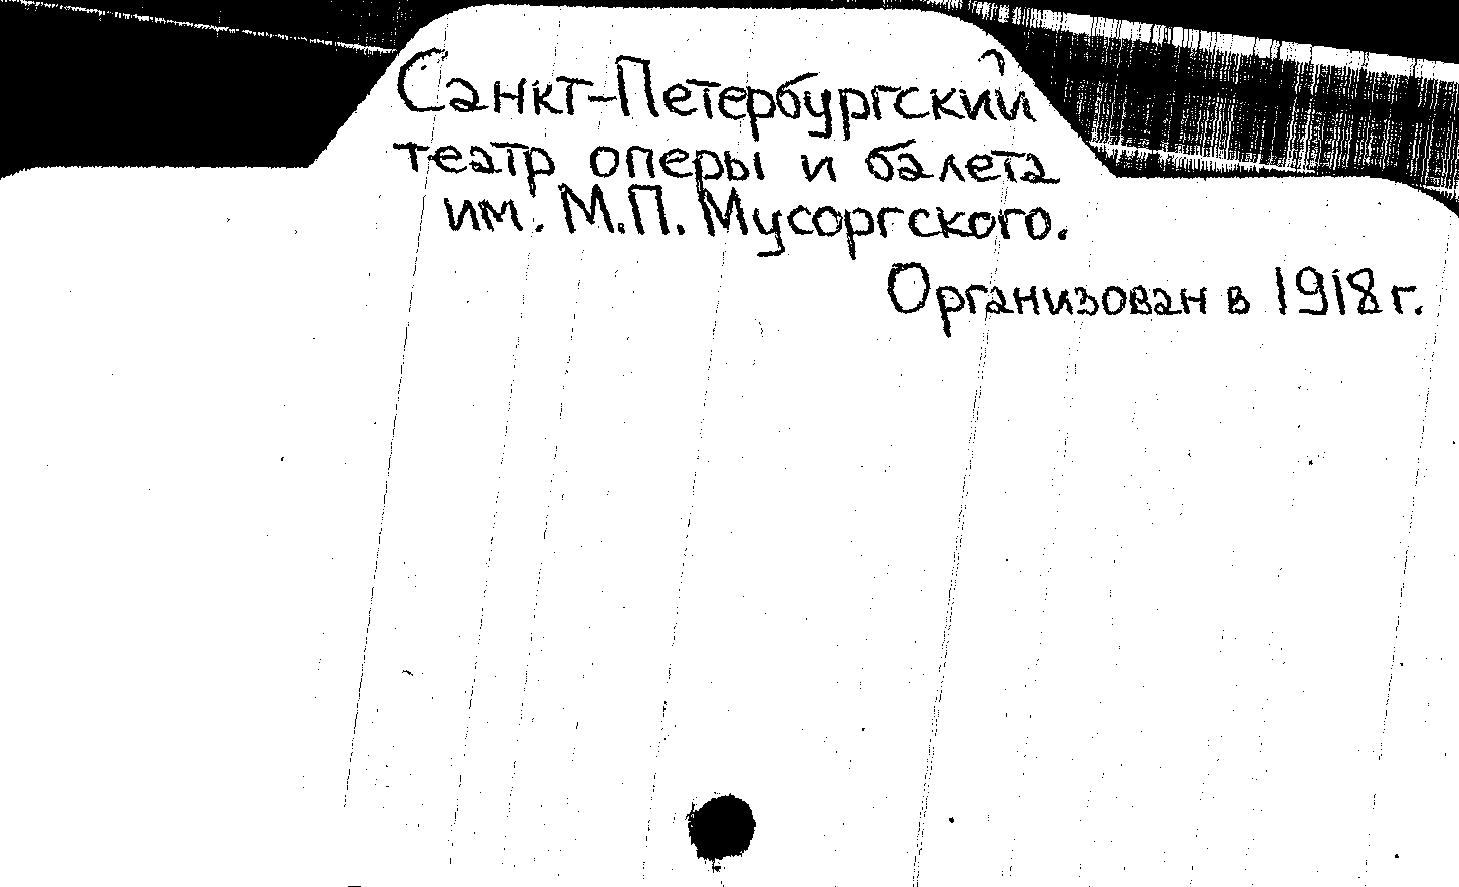 Санкт-Петербургский
театр оперы и балета
им. М.П. Мусоргского.
Организован в 1918 г.